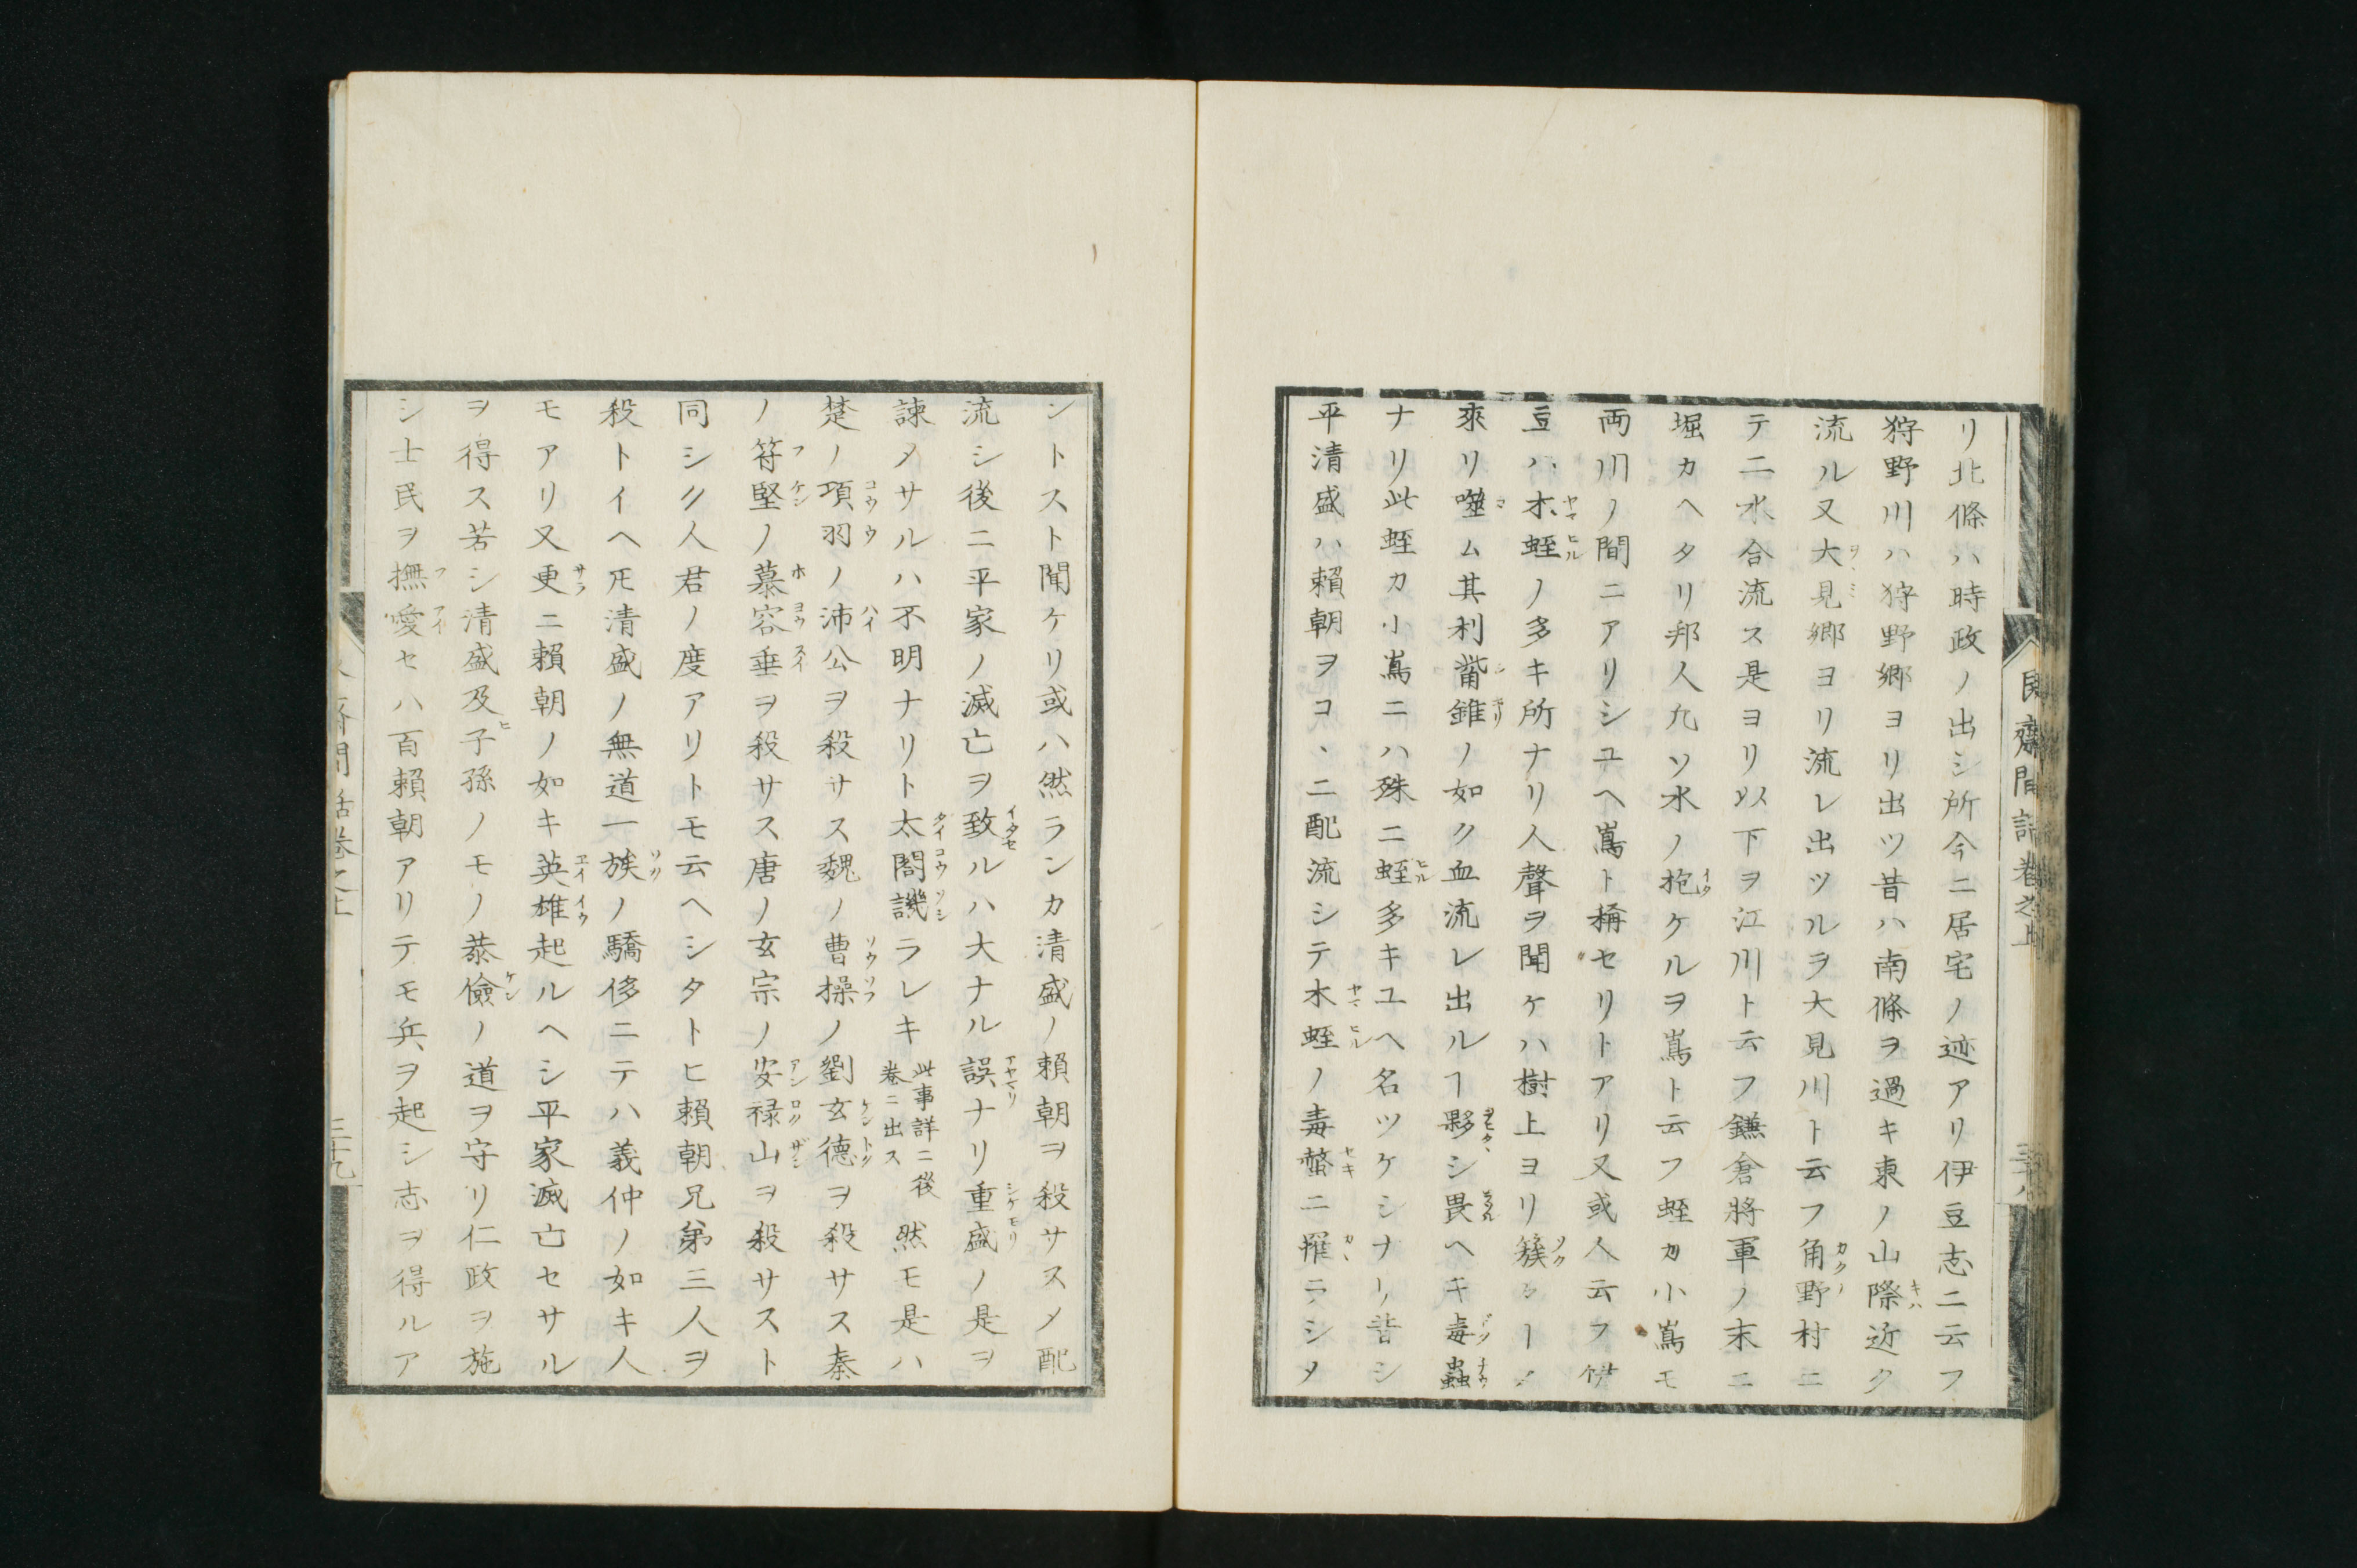 リ北條ハ時政ノ出シ所今ニ居宅ノ迹アリ伊豆志ニ云フ
狩野川ハ狩野郷ヨリ出ツ昔ハ南條ヲ過キ東ノ山際近ク
流ル又大見郷ヨリ流レ出ツルヲ大見川ト云フ角野村ニ
テ二水合流ス是ヨリ以下ヲ江川ト云フ鎌倉將軍ノ末ニ
堀カヘタリ邦人九ソ水ノ抱ケルヲ嶌ト云フ蛭カ小嶌モ
両川ノ間ニアリシユヘ嶌ト稱セリトアリ又或人云フ伊
豆ハ木蛭ノ多キ所ナリ人聲ヲ聞ケハ樹上ヨリ簇
來リ噬ム其利觜錐ノ如ク血流レ出ルヿ夥シ畏ヘキ毒蟲
ナリ此蛭カ小嶌ニハ殊ニ蛭多キユヘ名ツケシナリ昔シ
平清盛ハ頼朝ヲコヽニ配流シテ木蛭ノ毒螫ニ罹ラシメ
シトスト聞ケリ或ハ然ランカ清盛ノ頼朝ヲ殺サスメ配
流シ後ニ平家ノ滅亡ヲ致ルハ大ナル誤ナリ重盛ノ是ヲ
諫メサルハ不明ナリト太閤譏ラレキ此事詳ニ後卷ニ出ス然モ是ハ
楚ノ項羽ノ沛公ヲ殺サス魏ノ曹操ノ劉玄德ヲ殺サス秦
ノ苻堅ノ慕容垂ヲ殺サス唐ノ玄宗ノ安禄山ヲ殺サスト
同シク人君ノ度アリトモ云ヘシタトヒ頼朝兄弟三人ヲ
殺トイヘ𪜈清盛ノ無道一族ノ驕侈ニテハ義仲ノ如キ人
モアリ又更ニ頼朝ノ如キ英雄起ルヘシ平家滅亡セサル
ヲ得ス若シ清盛及子孫ノモノ恭儉ノ道ヲ守リ仁政ヲ施
シ士民ヲ撫愛セハ百頼朝アリテモ兵ヲ起シ志ヲ得ルア